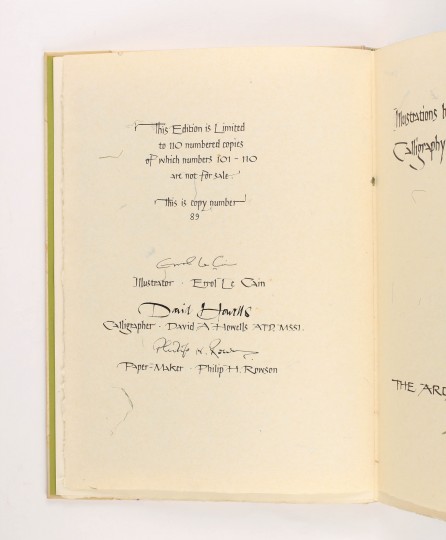 This Edition is Limited
to 110 numbered copies
of which numbers 101 - 110
are not for sale.
This is copy number
89
Errol Le Cain
Illustrator · Errol Le Cain
David Howells
Calligrapher · David A Howells ATD. MSSI.
Philip H. Rowson
Paper-Maker · Philip H. Rowson
Illustrations
Calligraphy
THE